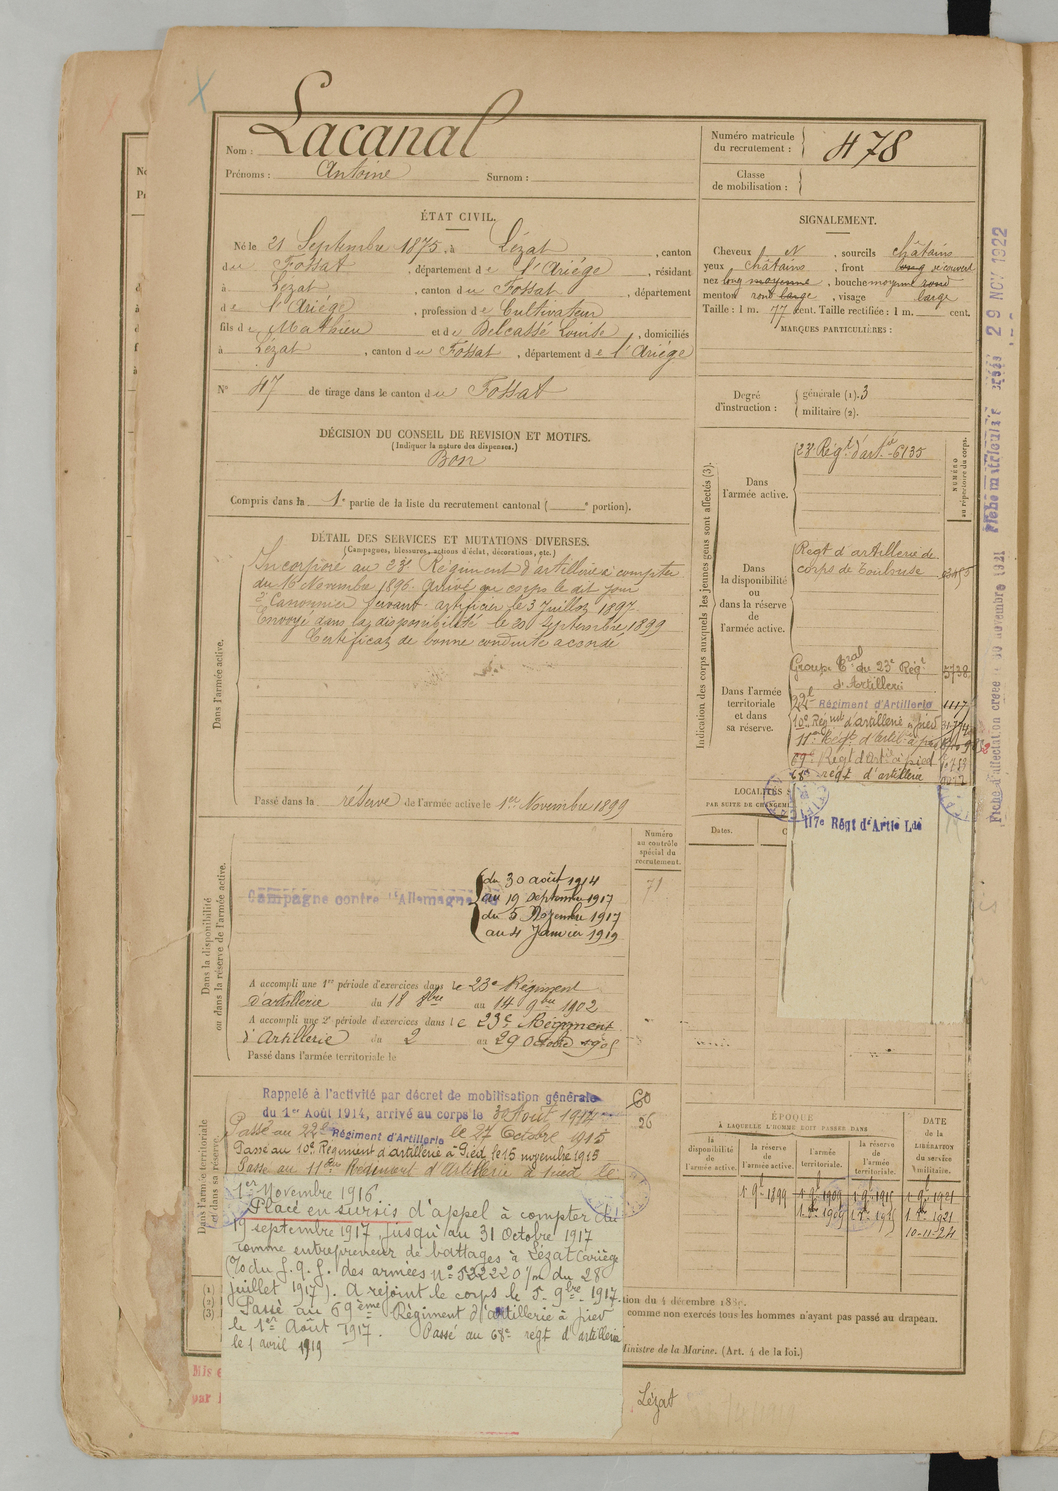 Nom : Lacanal
Prénoms : Antoine Surnom :
Numéro matricule
du recrutement : 478
Classe
de mobilisation :
ÉTAT CIVIL.
Né le 21 Septembre 1875, à Lézat, canton
du Fossat, département de l'Ariége, résidant
à Lézat, canton du Fossat, département
de l'Ariége, profession de Cultivateur
fils de Mathieu et de Delcassé Louise, domiciliés
à Lézat, canton du Fossat, département de l'Ariége
N° 47 de tirage dans le canton du Fossat
DÉCISION DU CONSEIL DE REVISION ET MOTIFS.
(Indiquer la nature des dispenses.)
Bon
Compris dans la 1e partie de la liste du recrutement cantonal ( e portion).
SIGNALEMENT.
Cheveux N, sourcils châtains
yeux châtains, front long découvert
nez long moyenne, bouche moyenne rond
menton rond large, visage large
Taille : 1 m. 77 cent. Taille rectifiée : 1 m. cent.
MARQUES PARTICULIÈRES :
Degré
d'instruction :
générale (1). 3
militaire (2).
DÉTAIL DES SERVICES ET MUTATIONS DIVERSES.
(Campagnes, blessures, actions d'éclat, décorations, etc.)
Dans l'armée active.
Incorporé au 23e Régiment d'artillerie à compter
du 16 Novembre 1896. Arrivé au corps le dit jour
2e Canonnier servant. artificier le 3 Juillet 1897.
Envoyé dans la disponibilité le 20 Septembre 1899
Certificat de bonne conduite acordé
Passé dans la réserve de l'armée active le 1er Novembre 1899
Indication des corps auxquels les jeunes gens sont affectés (3).
NUMÉRO
au répertoire du corps.
Dans
l'armée active.
23e Régt d'artie 6135
Dans
la disponibilité
ou
dans la réserve
de
l'armée active.
Régt d'artillerie de
corps de Toulouse
Dans l'armée
territoriale
et dans
sa réserve.
Groupe tral du 23e Régt 5738
d'Artillerie
22e Régiment d'Artillerie
10e Régmt d'artillerie à pied
11e Régt d'artie à pied
69e Régt d'Artie à pied
68e régt d'artillerie
117e Régt d'Artie Lde
LOCALITÉS
PAR SUITE DE CHANGEM
Dates.
Dans la disponibilité
ou dans la réserve de l'armée active.
Numéro
au contrôle
spécial du
recrutement.
71
Campagne contre l'Allemagne
du 30 août 1914
au 19 septembre 1917
du 5 Novembre 1917
au 4 Janvier 1919
A accompli une 1re période d'exercices dans le 23e Régiment
d'artillerie du 18 8bre au 14 9bre 1902
A accompli une 2e période d'exercices dans le 23e Régiment
d'Artillerie du 2 au 29 Octobre 1905
Passé dans l'armée territoriale le
Dans l'armée territoriale
et dans sa réserve.
60
26
Rappelé à l'activité par décret de mobilisation générale
du 1er Août 1914, arrivé au corps le 30 Août 1914
Passé au 22e Régiment d'Artillerie le 27 Octobre 1915
Passé au 10e Régiment d'artillerie à Pied le 15 novembre 1915
Passé au 11ème Régiment d'Artillerie à pied le
1er Novembre 1916
Placé en sursis d'appel à compter du
19 septembre 1917 jusqu'au 31 Octobre 1917
comme entrepreneur de battages à Lézat (ariège
(T.O du g. q. g. des armées n° 522220 1/m du 28
juillet 1917). A rejoint le corps le 5 9bre 1917.
Passé au 69ème Régiment d'artillerie à pied
le 1er Août 1917. Passé au 68e régt d'artillerie
le 1 avril 1919
ÉPOQUE
À LAQUELLE L'HOMME DOIT PASSER DANS
la
disponibilité
de
l'armée active.
la réserve
de
l'armée active.
l'armée
territoriale.
la réserve
de
l'armée
territoriale.
DATE
de la
LIBÉRATION
du service
militaire.
10-11-24
(1)
(2)
(3)
comme non exercés tous les hommes n'ayant pas passé au drapeau.
Ministre de la Marine. (Art. 4 de la loi.)
Lézat
Fiche matriculaire créée 29 NOV 1922
Fiche d'affectation créée